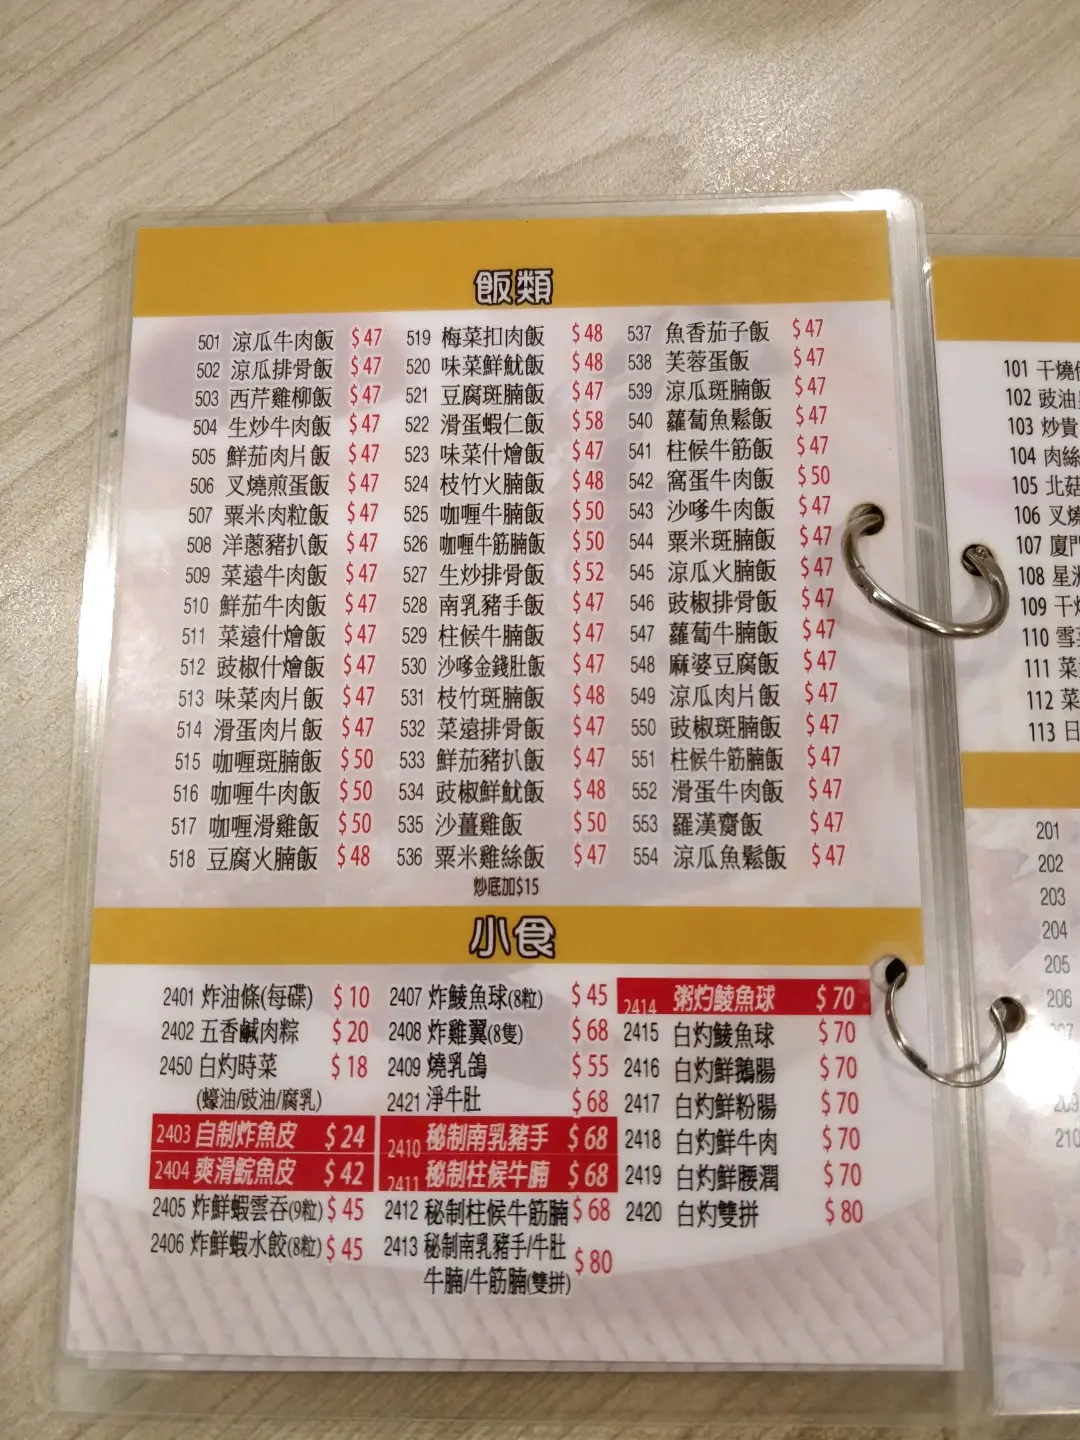 飯類
501 涼瓜牛肉飯 $47
502 涼瓜排骨飯 $47
503 西芹雞柳飯 $47
504 生炒牛肉飯 $47
505 鮮茄肉片飯 $47
506 叉燒煎蛋飯 $47
507 粟米肉粒飯 $47
508 洋蔥豬扒飯 $47
509 菜遠牛肉飯 $47
510 鮮茄牛肉飯 $47
511 菜遠什燴飯 $47
512 豉椒什燴飯 $47
513 味菜肉片飯 $47
514 滑蛋肉片飯 $47
515 咖喱斑腩飯 $50
516 咖喱牛肉飯 $50
517 咖喱滑雞飯 $50
518 豆腐火腩飯 $48
519 梅菜扣肉飯 $48
520 味菜鮮魷飯 $48
521 豆腐斑腩飯 $47
522 滑蛋蝦仁飯 $58
523 味菜什燴飯 $47
524 枝竹火腩飯 $48
525 咖喱牛腩飯 $50
526 咖喱牛筋腩飯 $50
527 生炒排骨飯 $52
528 南乳豬手飯 $47
529 柱候牛腩飯 $47
530 沙嗲金錢肚飯 $47
531 枝竹斑腩飯 $48
532 菜遠排骨飯 $47
533 鮮茄豬扒飯 $47
534 豉椒鮮魷飯 $48
535 沙薑雞飯 $50
536 粟米雞絲飯 $47
537 魚香茄子飯 $47
538 芙蓉蛋飯 $47
539 涼瓜斑腩飯 $47
540 蘿蔔魚鬆飯 $47
541 柱候牛筋飯 $47
542 窩蛋牛肉飯 $50
543 沙嗲牛肉飯 $47
544 粟米斑腩飯 $47
545 涼瓜火腩飯 $47
546 豉椒排骨飯 $47
547 蘿蔔牛腩飯 $47
548 麻婆豆腐飯 $47
549 涼瓜肉片飯 $47
550 豉椒斑腩飯 $47
551 柱候牛筋腩飯 $47
552 滑蛋牛肉飯 $47
553 羅漢齋飯 $47
554 涼瓜魚鬆飯 $47
炒底加$15
小食
2401 炸油條(每碟) $10
2402 五香鹹肉粽 $20
2450 白灼時菜 $18
(蠔油/豉油/腐乳)
2403 自制炸魚皮 $24
2404 爽滑鯇魚皮 $42
2405 炸鮮蝦雲吞(9粒) $45
2406 炸鮮蝦水餃(8粒) $45
2407 炸鯪魚球(8粒) $45
2408 炸雞翼(8隻) $68
2409 燒乳鴿 $55
2421 淨牛肚 $68
2410 秘制南乳豬手 $68
2411 秘制柱候牛腩 $68
2412 秘制柱候牛筋腩 $68
2413 秘制南乳豬手/牛肚
牛腩/牛筋腩(雙拼) $80
2414 粥灼鯪魚球 $70
2415 白灼鯪魚球 $70
2416 白灼鮮鵝腸 $70
2417 白灼鮮粉腸 $70
2418 白灼鮮牛肉 $70
2419 白灼鮮腰潤 $70
2420 白灼雙拼 $80
101 干燒
102 豉油
103 炒貴
104 肉絲
105 北菇
106 叉燒
107 廈門
108 星洲
109 干炒
110 雪菜
111 菜
112 菜
113 日
201
202
203
204
205
206
209
210